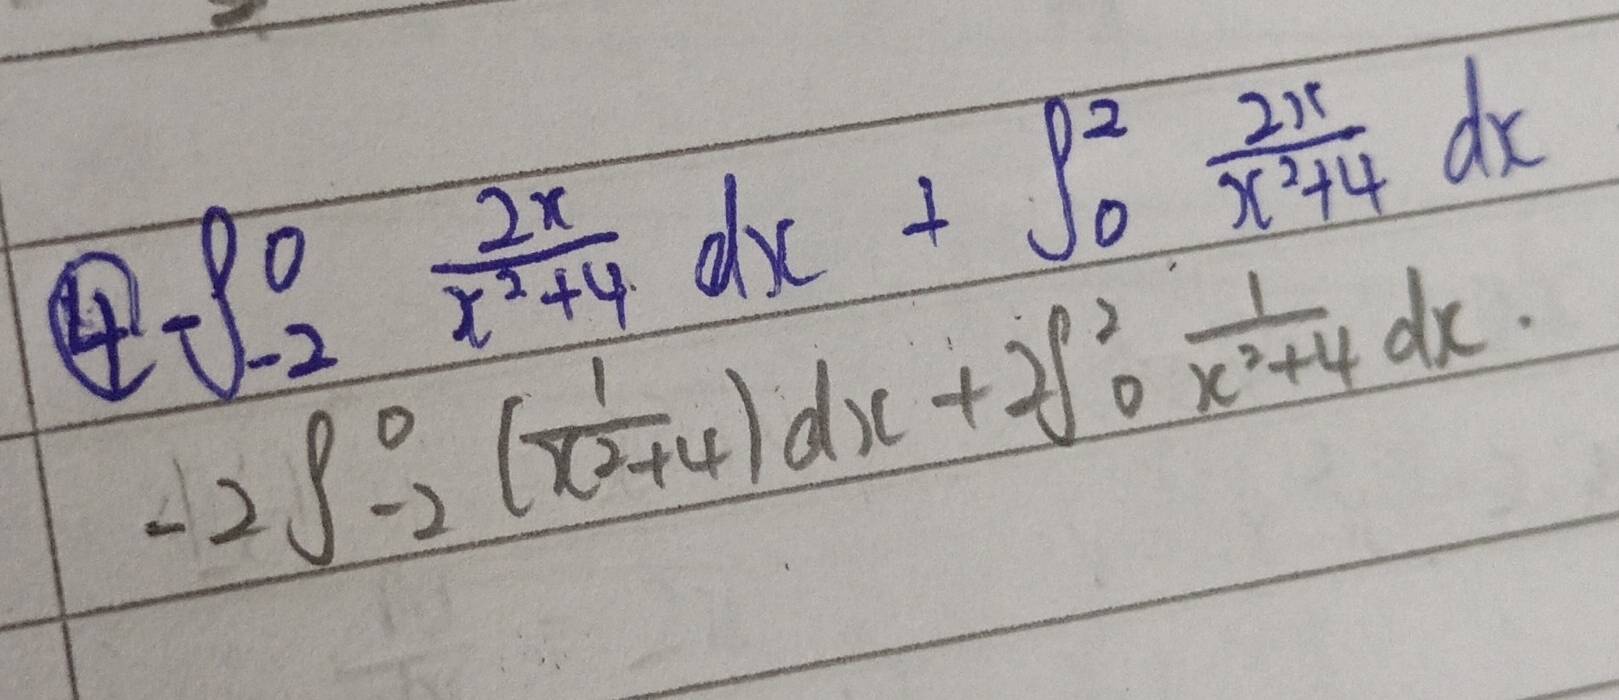 ④ -∫₋₂⁰ 2x/(x²+4) dx + ∫₀² 2x/(x²+4) dx
-2∫₋₂⁰ (1/(x²+4)) dx + 2∫₀² 1/(x²+4) dx.